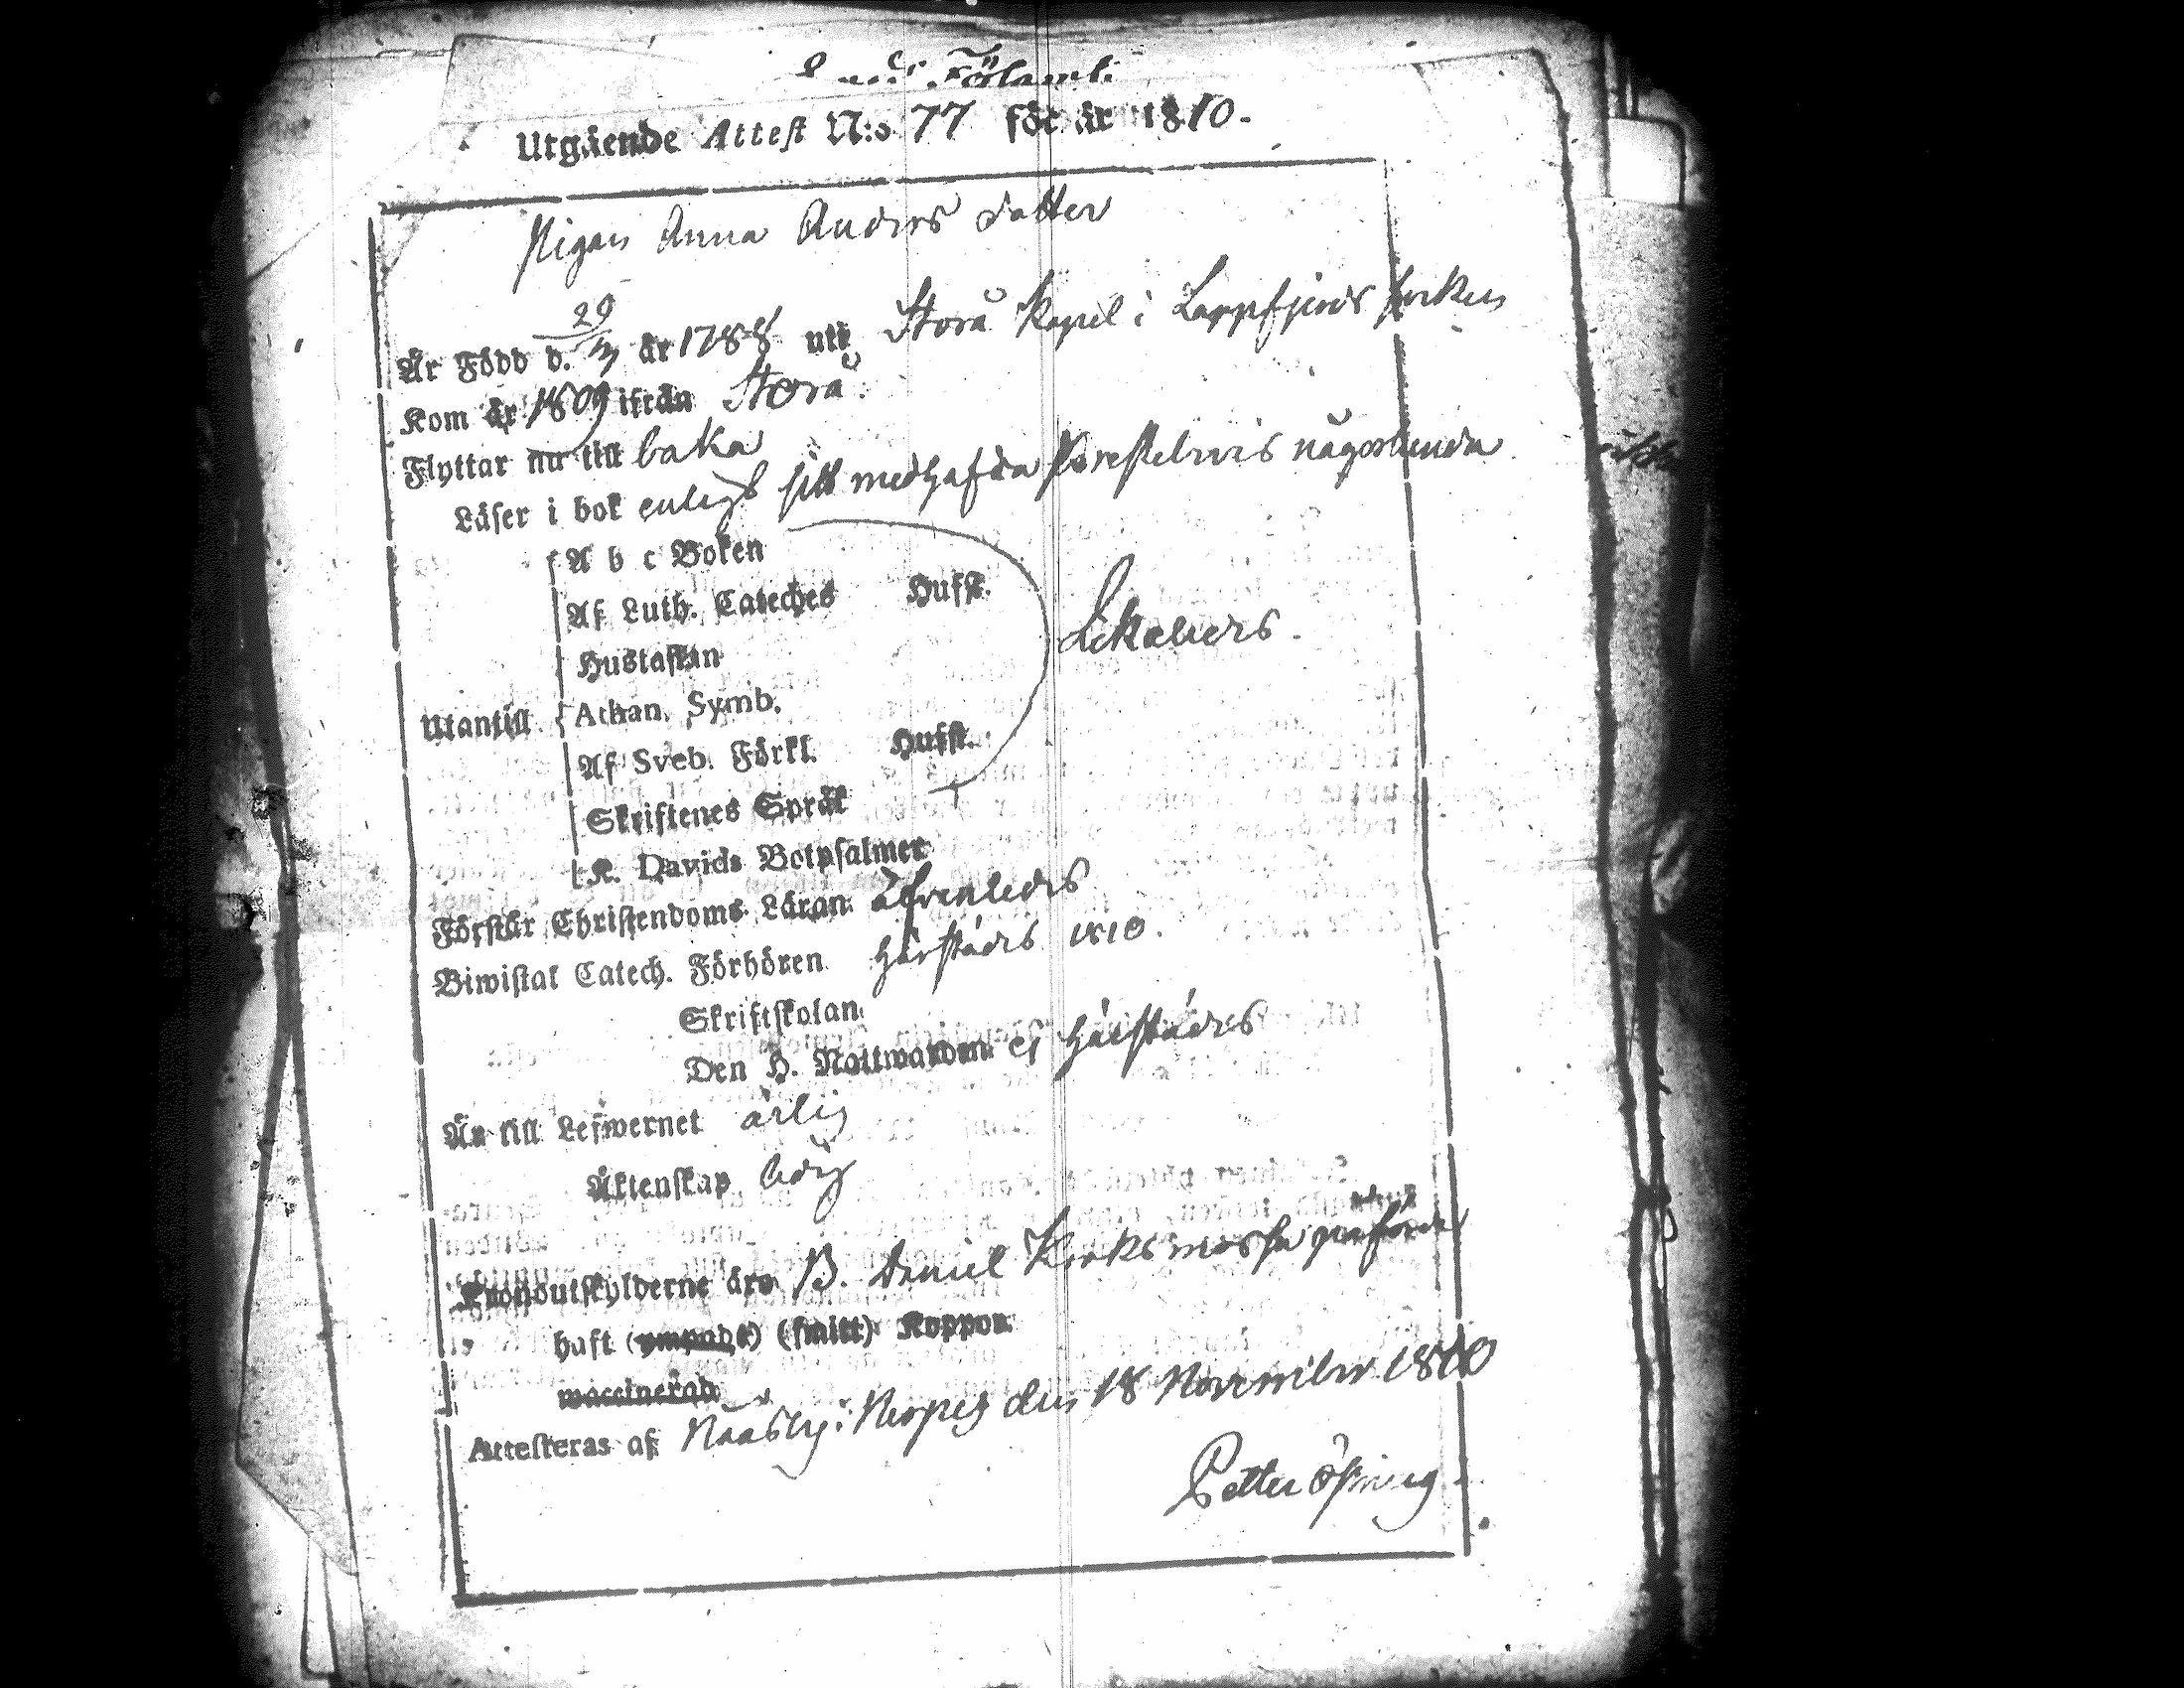 Utgående Attest N:o 77 för år 1810.
Pigan Anna Anders Dotter
Är Född d. 29/3 år 1788 uti Storå Kapel i Lappfjerds socken
Kom år 1809 ifrån Storå.
Flyttar nu till baka
Läser i bok enligt sitt medhafda Prestebevis någorlunda
A b c Boken
Af Luth. Cateches Hufst.
Hustaflan
Likaledes.
Utantill Athan. Symb.
Af Sveb. Förkl. Hufst.
Skriftenes Språk
K. Davids Botpsalmer
Förstår Christendoms Läran äfvenledes
Biwistat Catech. Förhören härstädes 1810.
Skriftskolan
Den H. Nattwarden ej härstädes
Är till Lefwernet ärlig
Äktenskap ledig
Kronoutskylderne äro B. Daniel Kroksmossa påförde
haft (ympade) (smitt) Koppor.
waccinerad
Attesteras af Nääsby i Nerpes den 18 November 1810
Petter